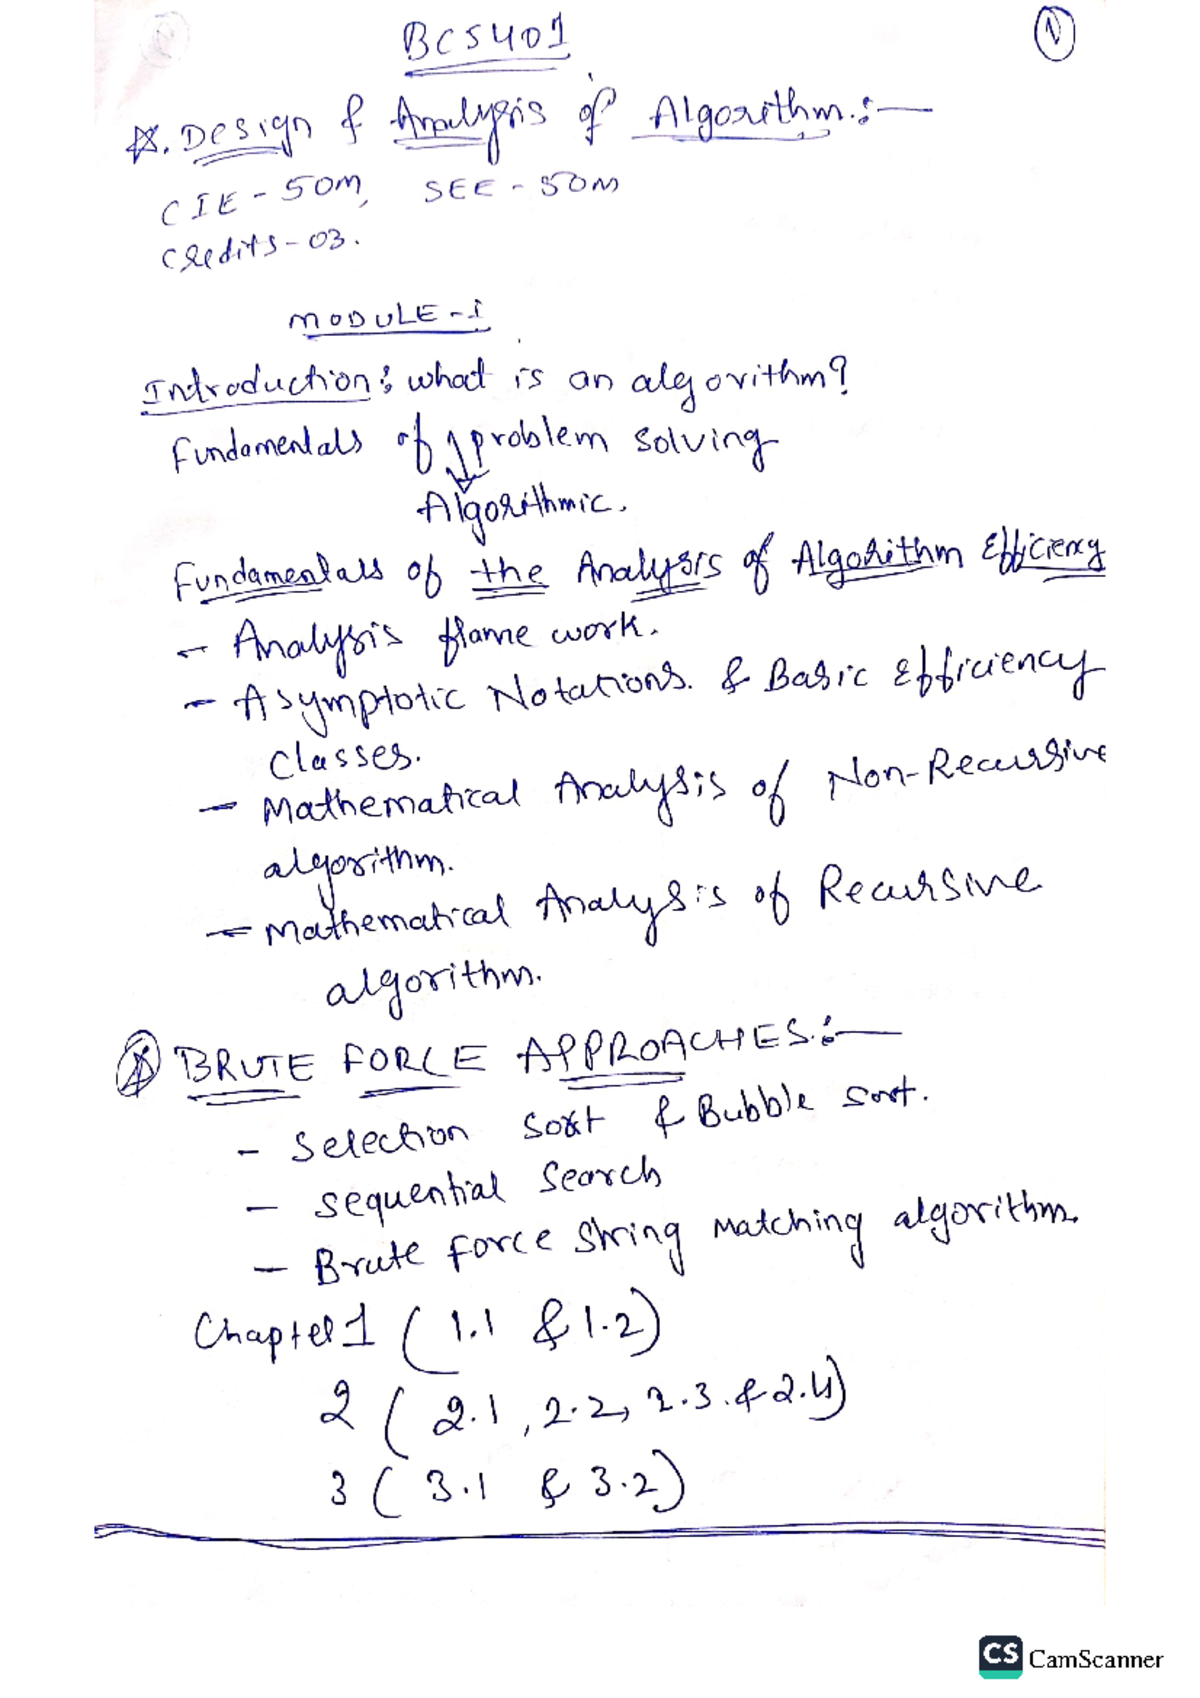 BCS401
1
☆. Design & Analysis of Algorithm.:—
CIE - 50M, SEE - 50M
Credits - 03.
MODULE - I
Introduction: what is an algorithm?
Fundamentals of problem solving
Algorithmic.
Fundamentals of the Analysis of Algorithm Efficiency
- Analysis frame work.
- Asymptotic Notations. & Basic Efficiency
Classes.
- Mathematical Analysis of Non-Recursive
algorithm.
- Mathematical Analysis of Recursive
algorithm.
☆ BRUTE FORCE APPROACHES.:—
- Selection Sort & Bubble sort.
- Sequential Search
- Brute force String Matching algorithm.
Chapter 1 ( 1.1 & 1.2)
2 ( 2.1, 2.2, 2.3. & 2.4)
3 ( 3.1 & 3.2)
CS CamScanner